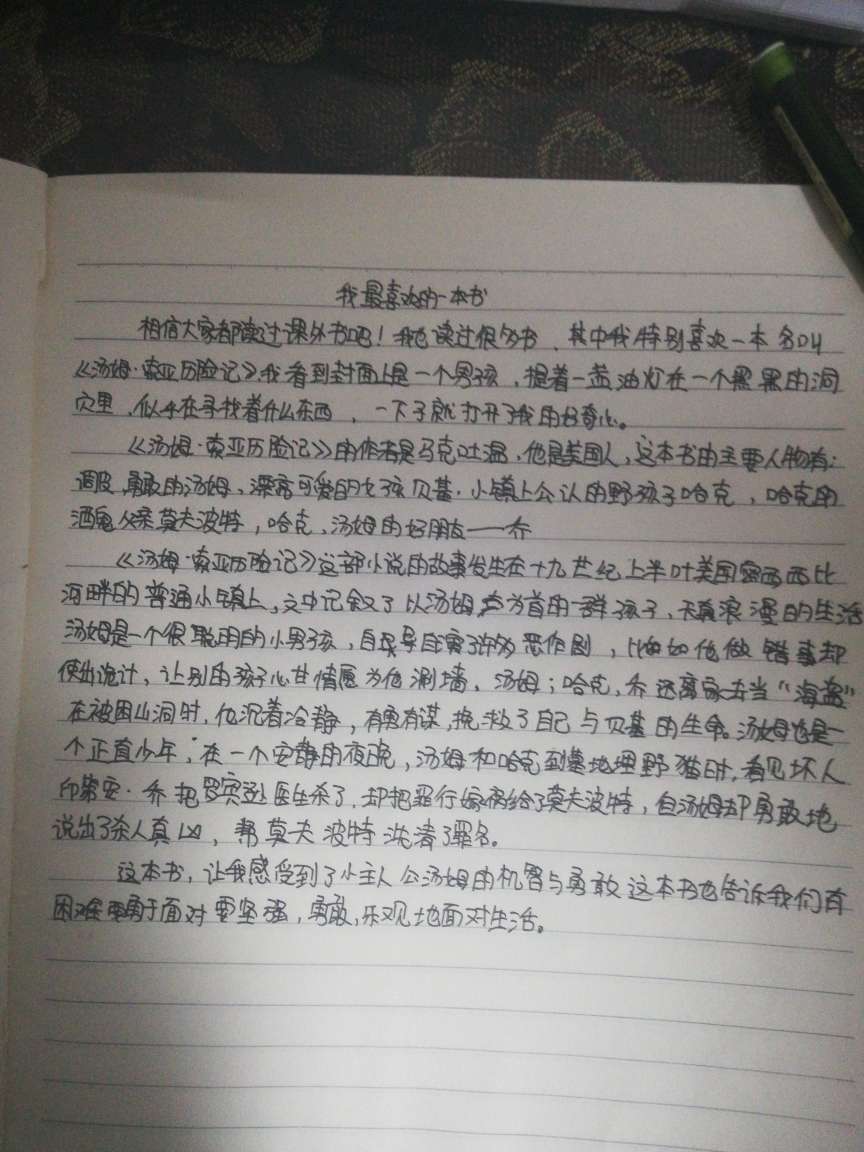 我最喜欢的一本书
相信大家都读过课外书吧！我也读过很多书，其中我特别喜欢一本名叫
《汤姆·索亚历险记》，我看到封面上是一个男孩，提着一盏油灯在一个黑黑的洞
穴里，似乎在寻找着什么东西，一下子就打开了我的好奇心。
《汤姆·索亚历险记》的作者是马克吐温，他是美国人，这本书的主要人物有：
调皮，勇敢的汤姆，漂亮可爱的女孩贝基，小镇上公认的野孩子哈克，哈克的
酒鬼父亲莫夫波特，哈克，汤姆的好朋友——乔
《汤姆·索亚历险记》这部小说的故事发生在十九世纪上半叶美国密西西比
河畔的普通小镇上，文中记叙了以汤姆为首的一群孩子，天真浪漫的生活
汤姆是一个很聪明的小男孩，自导自演了许多恶作剧，比如他做错事却
使出诡计，让别的孩子心甘情愿为他涮墙，汤姆；哈克，乔还离家去当“海盗”
在被困山洞时，他沉着冷静，有勇有谋，挽救了自己与贝基的生命。汤姆也是一
个正直少年，在一个安静的夜晚，汤姆和哈克到墓地埋野猫时，看见坏人
印第安·乔把罗宾逊医生杀了，却把罪行嫁祸给了莫夫波特，但汤姆却勇敢地
说出了杀人真凶，帮莫夫波特洗清了罪名。
这本书，让我感受到了小主人公汤姆的机智与勇敢这本书也告诉我们有
困难要勇于面对要坚强，勇敢，乐观地面对生活。